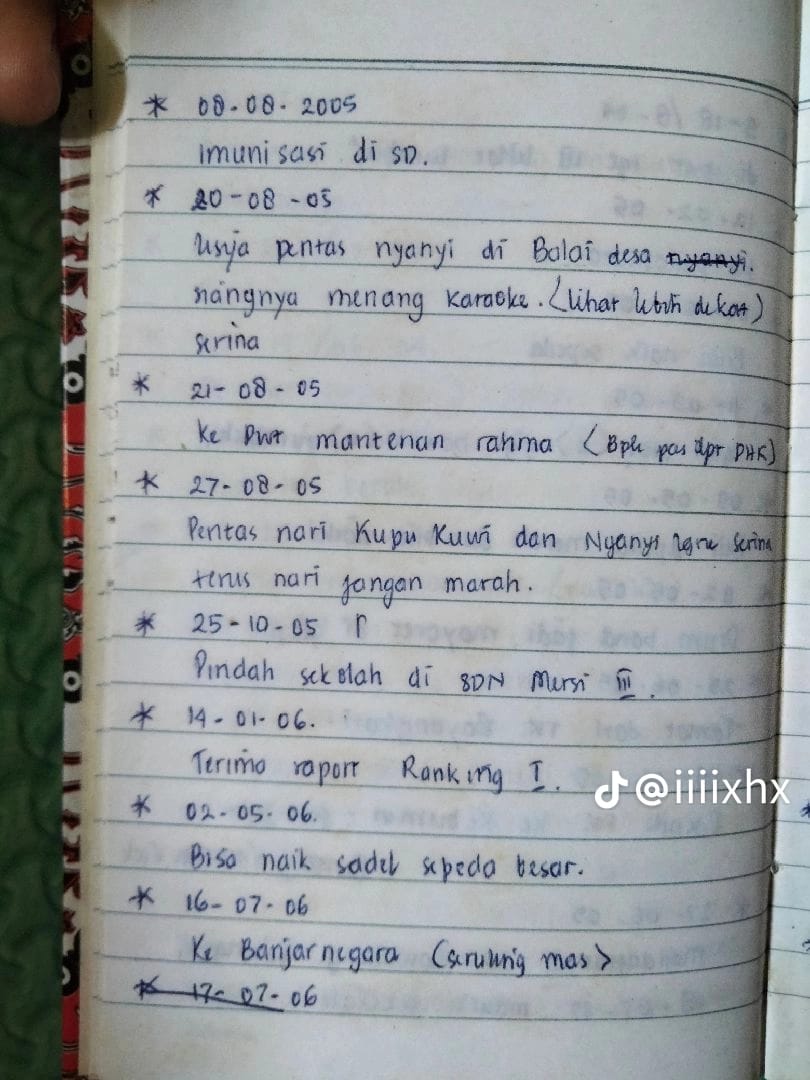 * 08-08-2005
imunisasi di SD.
* 20-08-05
pentas nyanyi di Balai desa nyanyi.
menang karaoke. (lihat lebih dekat)
serina
* 21-08-05
Ke Pwt mantenan rahma (Bpk pas dpt PHK)
* 27-08-05
Pentas nari Kupu Kuwi dan Nyanyi serina
terus nari jangan marah.
* 25-10-05
Pindah sekolah di SDN Mersi III.
* 14-01-06.
Terima raport Ranking I.
* 02-05-06.
Bisa naik sadel sepeda besar.
* 16-07-06
Ke Banjarnegara (seruling mas)
* 17-07-06
@iiiixhx